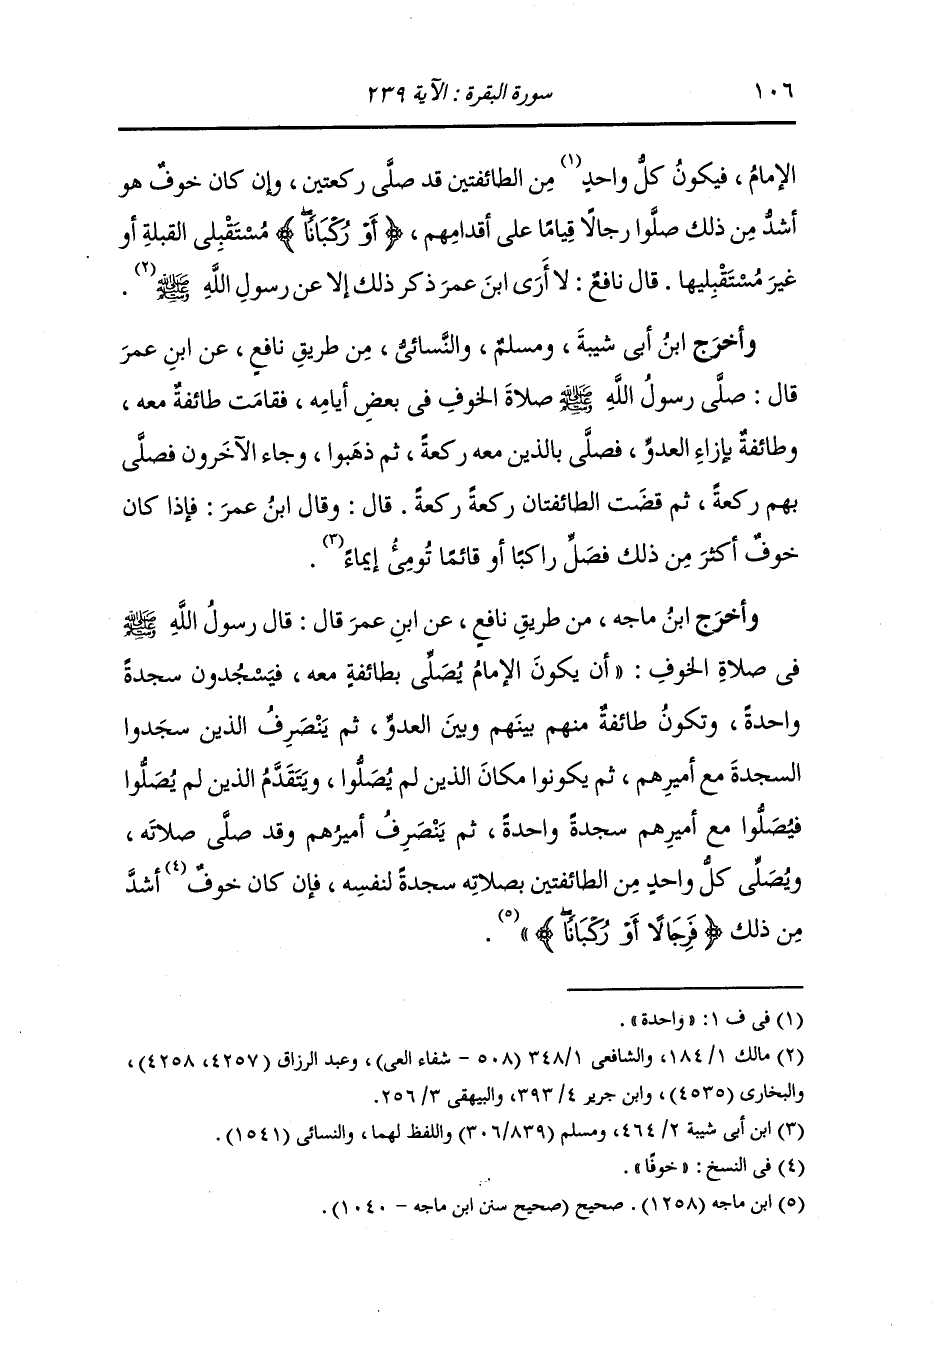 ١٠٦ سورة البقرة : الآية ٢٣٩
الإمامُ ، فيكونُ كلُّ واحدٍ(١) مِن الطائفتين قد صلَّى ركعتين ، وإن كان خوفٌ هو
أشدُّ مِن ذلك صلَّوا رجالًا قِيامًا على أقدامِهم ، ﴿ أَوْ رُكْبَانًا ﴾ مُسْتَقْبِلى القبلةِ أو
غيرَ مُسْتَقْبِليها . قال نافعٌ : لا أُرَى ابنَ عمرَ ذكر ذلك إلا عن رسولِ اللَّهِ ﷺ(٢) .
وأخرَج ابنُ أبى شيبةَ ، ومسلمٌ ، والنَّسائىُّ ، مِن طريقِ نافعٍ ، عن ابنِ عمرَ
قال : صلَّى رسولُ اللَّهِ ﷺ صلاةَ الخوفِ فى بعضِ أيامِه ، فقامَت طائفةٌ معه ،
وطائفةٌ بإزاءِ العدوِّ ، فصلَّى بالذين معه ركعةً ، ثم ذهَبوا ، وجاء الآخَرون فصلَّى
بهم ركعةً ، ثم قضَت الطائفتان ركعةً ركعةً . قال : وقال ابنُ عمرَ : فإذا كان
خوفٌ أكثرَ مِن ذلك فصَلِّ راكبًا أو قائمًا تُومِئُ إيماءً(٣) .
وأخرَج ابنُ ماجه ، من طريقِ نافعٍ ، عن ابنِ عمرَ قال : قال رسولُ اللَّهِ ﷺ
فى صلاةِ الخوفِ : « أن يكونَ الإمامُ يُصَلِّى بطائفةٍ معه ، فيَسْجُدون سجدةً
واحدةً ، وتكونُ طائفةٌ منهم بينَهم وبينَ العدوِّ ، ثم يَنْصَرِفُ الذين سجَدوا
السجدةَ مع أميرِهم ، ثم يكونوا مكانَ الذين لم يُصَلُّوا ، ويَتَقَدَّمُ الذين لم يُصَلُّوا
فيُصَلُّوا مع أميرِهم سجدةً واحدةً ، ثم يَنْصَرِفُ أميرُهم وقد صلَّى صلاتَه ،
ويُصَلِّى كلُّ واحدٍ مِن الطائفتين بصلاتِه سجدةً لنفسِه ، فإن كان خوفٌ(٤) أشدَّ
مِن ذلك ﴿ فَرِجَالًا أَوْ رُكْبَانًا ﴾ »(٥) .
(١) فى ف ١: « واحدة » .
(٢) مالك ١/ ١٨٤، والشافعى ٣٤٨/١ (٥٠٨ - شفاء العى) ، وعبد الرزاق (٤٢٥٧، ٤٢٥٨) ،
والبخارى (٤٥٣٥) ، وابن جرير ٤/ ٣٩٣، والبيهقى ٣/ ٢٥٦.
(٣) ابن أبى شيبة ٢/ ٤٦٤، ومسلم (٣٠٦/٨٣٩) واللفظ لهما ، والنسائى (١٥٤١) .
(٤) فى النسخ : « خوفًا » .
(٥) ابن ماجه (١٢٥٨) . صحيح (صحيح سنن ابن ماجه - ١٠٤٠) .